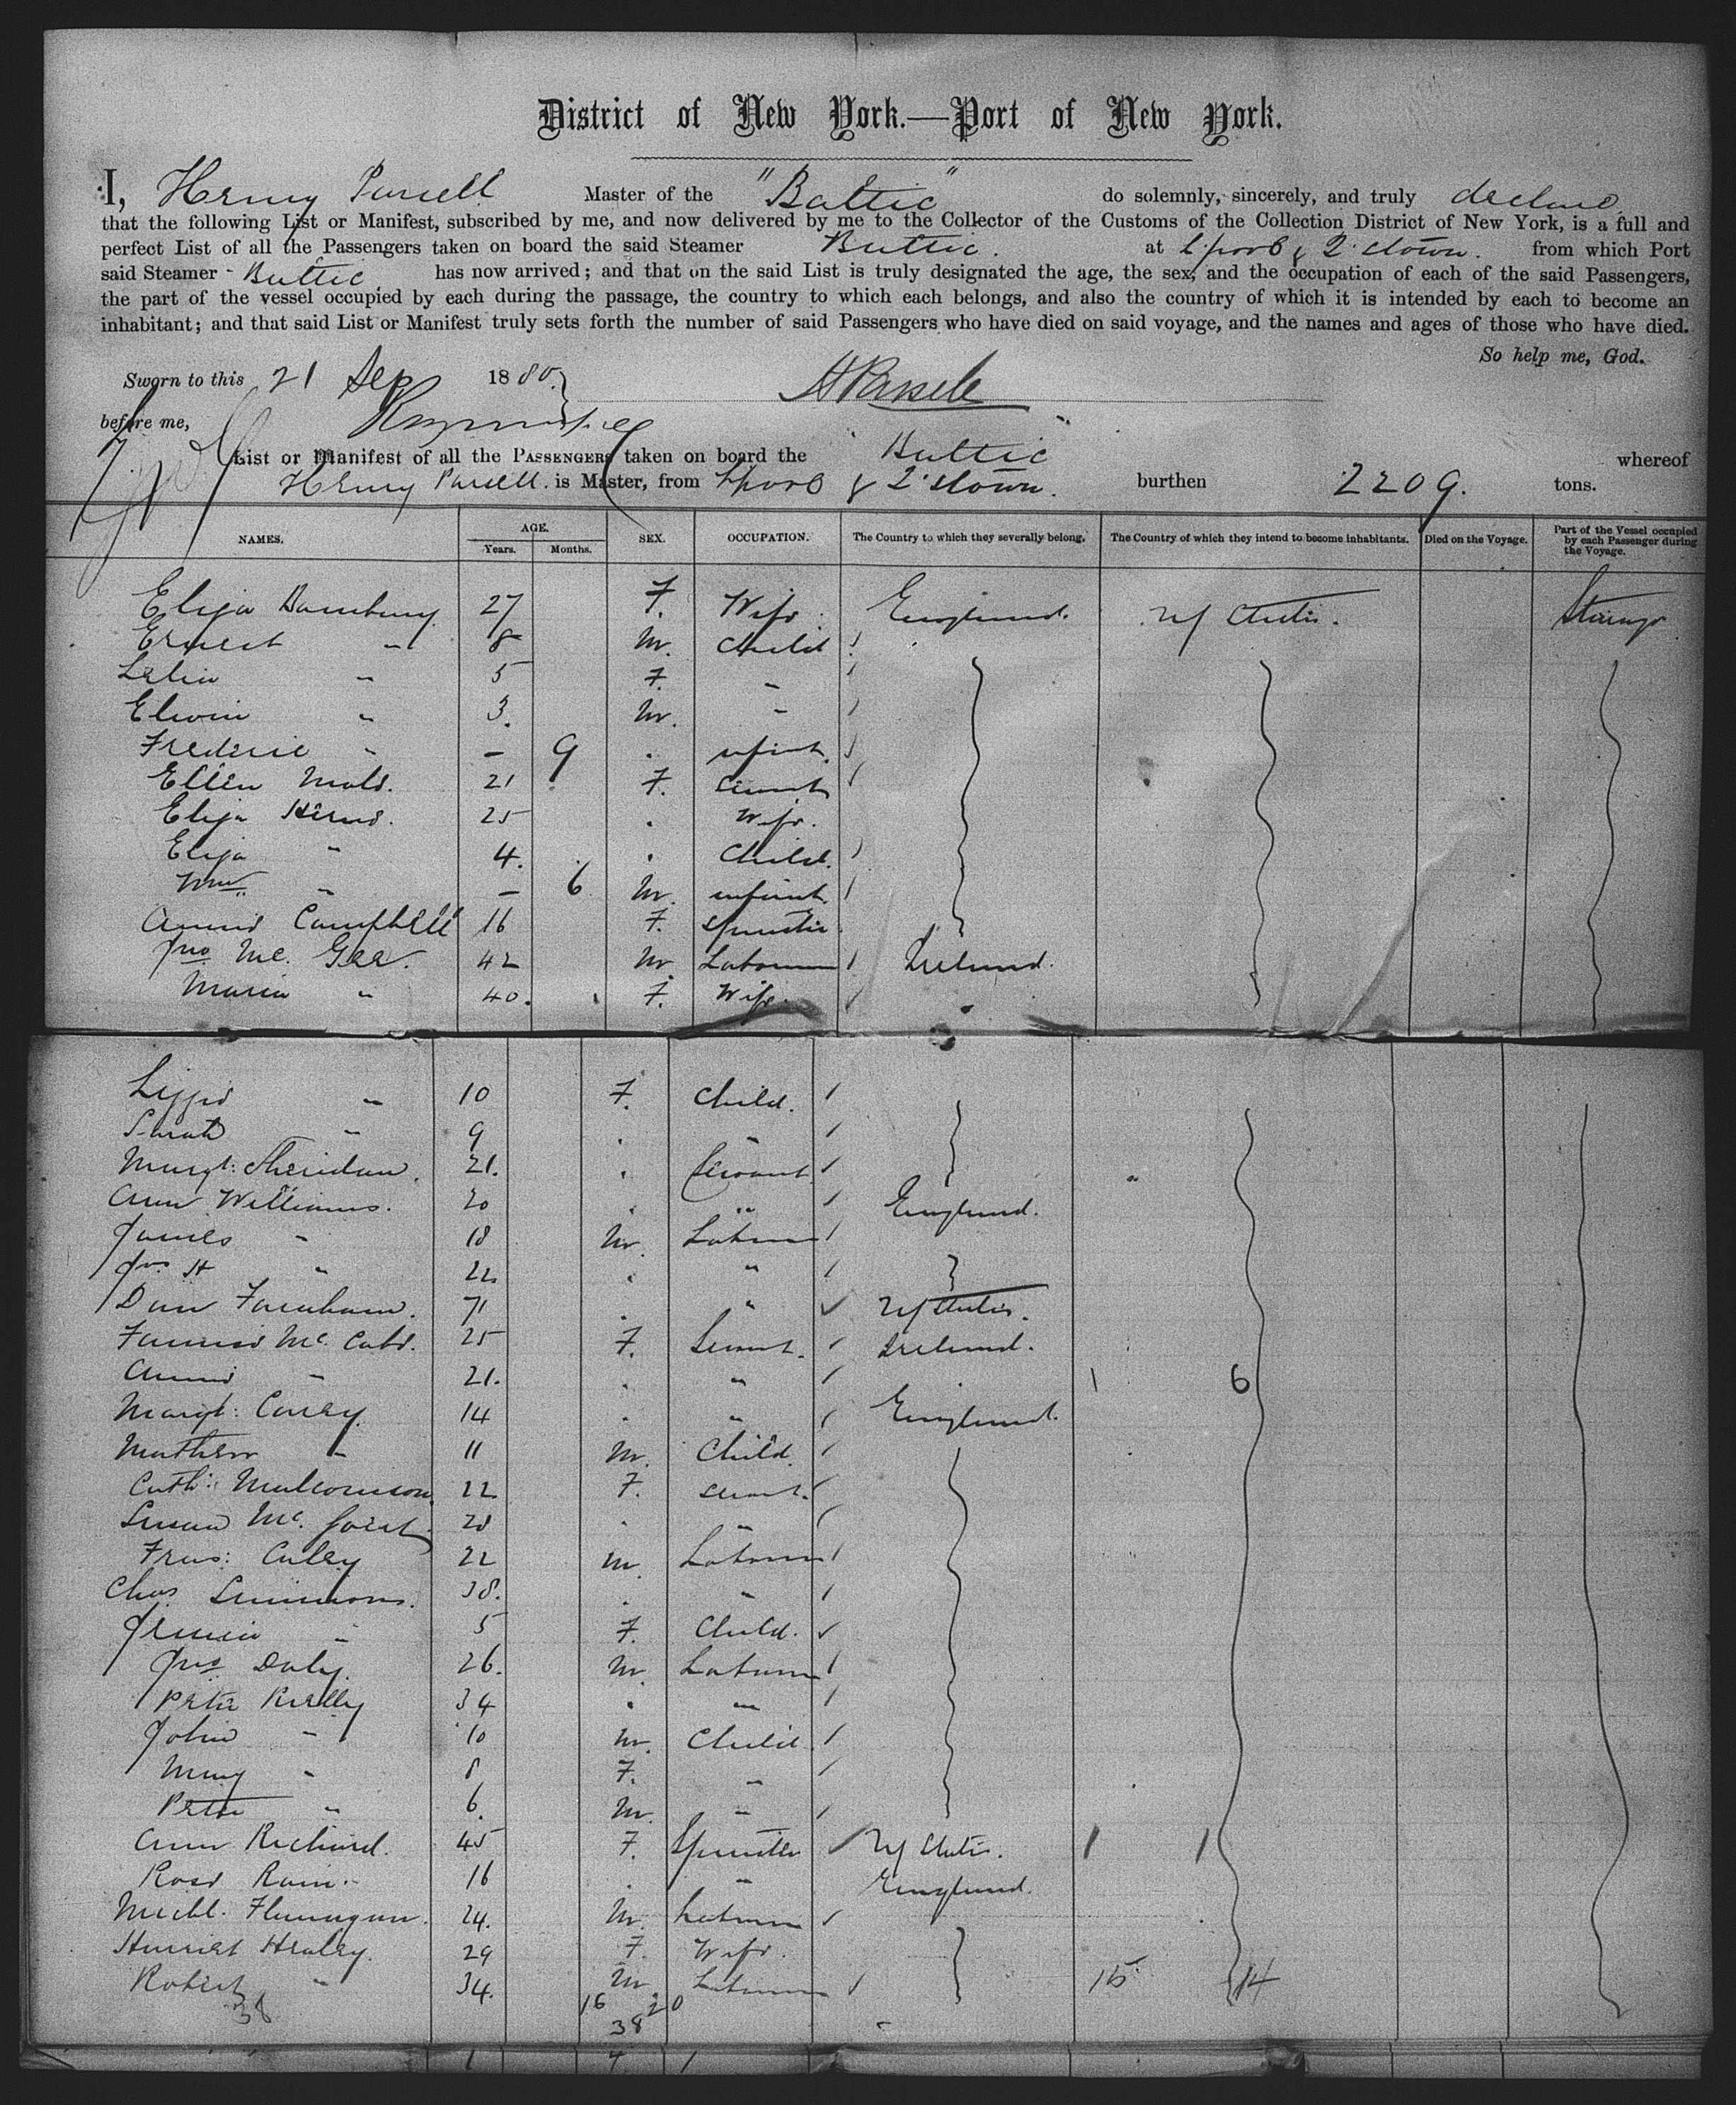 District of New York.—Port of New York.
I, Henry Parsell Master of the "Baltic" do solemnly, sincerely, and truly declare
that the following List or Manifest, subscribed by me, and now delivered by me to the Collector of the Customs of the Collection District of New York, is a full and
perfect List of all the Passengers taken on board the said Steamer Baltic. at L'pool & Q'stown. from which Port
said Steamer Baltic has now arrived; and that on the said List is truly designated the age, the sex, and the occupation of each of the said Passengers,
the part of the vessel occupied by each during the passage, the country to which each belongs, and also the country of which it is intended by each to become an
inhabitant; and that said List or Manifest truly sets forth the number of said Passengers who have died on said voyage, and the names and ages of those who have died.
So help me, God.
Sworn to this 21 Sep 1880. H Parsell
before me,
List or Manifest of all the PASSENGERS taken on board the Baltic whereof
Henry Parsell. is Master, from L'pool & Q'stown. burthen 2209. tons.
NAMES. AGE. Years. Months. SEX. OCCUPATION. The Country to which they severally belong. The Country of which they intend to become inhabitants. Died on the Voyage. Part of the Vessel occupied by each Passenger during the Voyage.
Eliza 27 F. Wife England. U States. Steerage
Ernest " 8 M. Child
Lelia " 5 F. "
Elwin " 3. M. "
Frederic " - 9 . infant
Ellen Mold. 21 F. Servant
Eliza 25 . Wife.
Eliza " 4. . Child.
Wm " - 6 M. infant.
Annie Campbell 16 F. Spinster
Jno Mc. Gee. 42 M. Labourer Ireland.
Maria " 40. F. Wife.
Lizzie " 10 F. Child.
Sarah " 9 . "
Margt: Sheridan. 21. . Servant
Ann Williams. 20 . " England.
James " 18 M. Labourer
Jos H " 22 . "
Dan Farnham. 71 . " U States.
Fannie Mc. Cabe. 25 F. Servant. Ireland.
Annie " 21. . " 1 6
Margt: Corley 14 . " England.
Mathew " 11 M. Child.
Cath: Malcomson 22 F. Servant.
Susan Mc. 20 . "
Fras: Culey 22 M. Labourer
Chas Simmons. 38. . "
Jessie " 5 F. Child.
Jno Daly. 26. M. Labourer
Peter Kielly 34 . "
John " 10 M. Child
Mary " 8 F. "
Peter " 6. M. "
Ann Richard. 45 F. Spinster U States. 1 1
Rose Rain. 16 . " England.
Michl. Flanagan. 24. M. Labourer
Harriet Healey. 29 F. Wife.
Robert " 34. M. Labourer 15 14
38 16 20
38